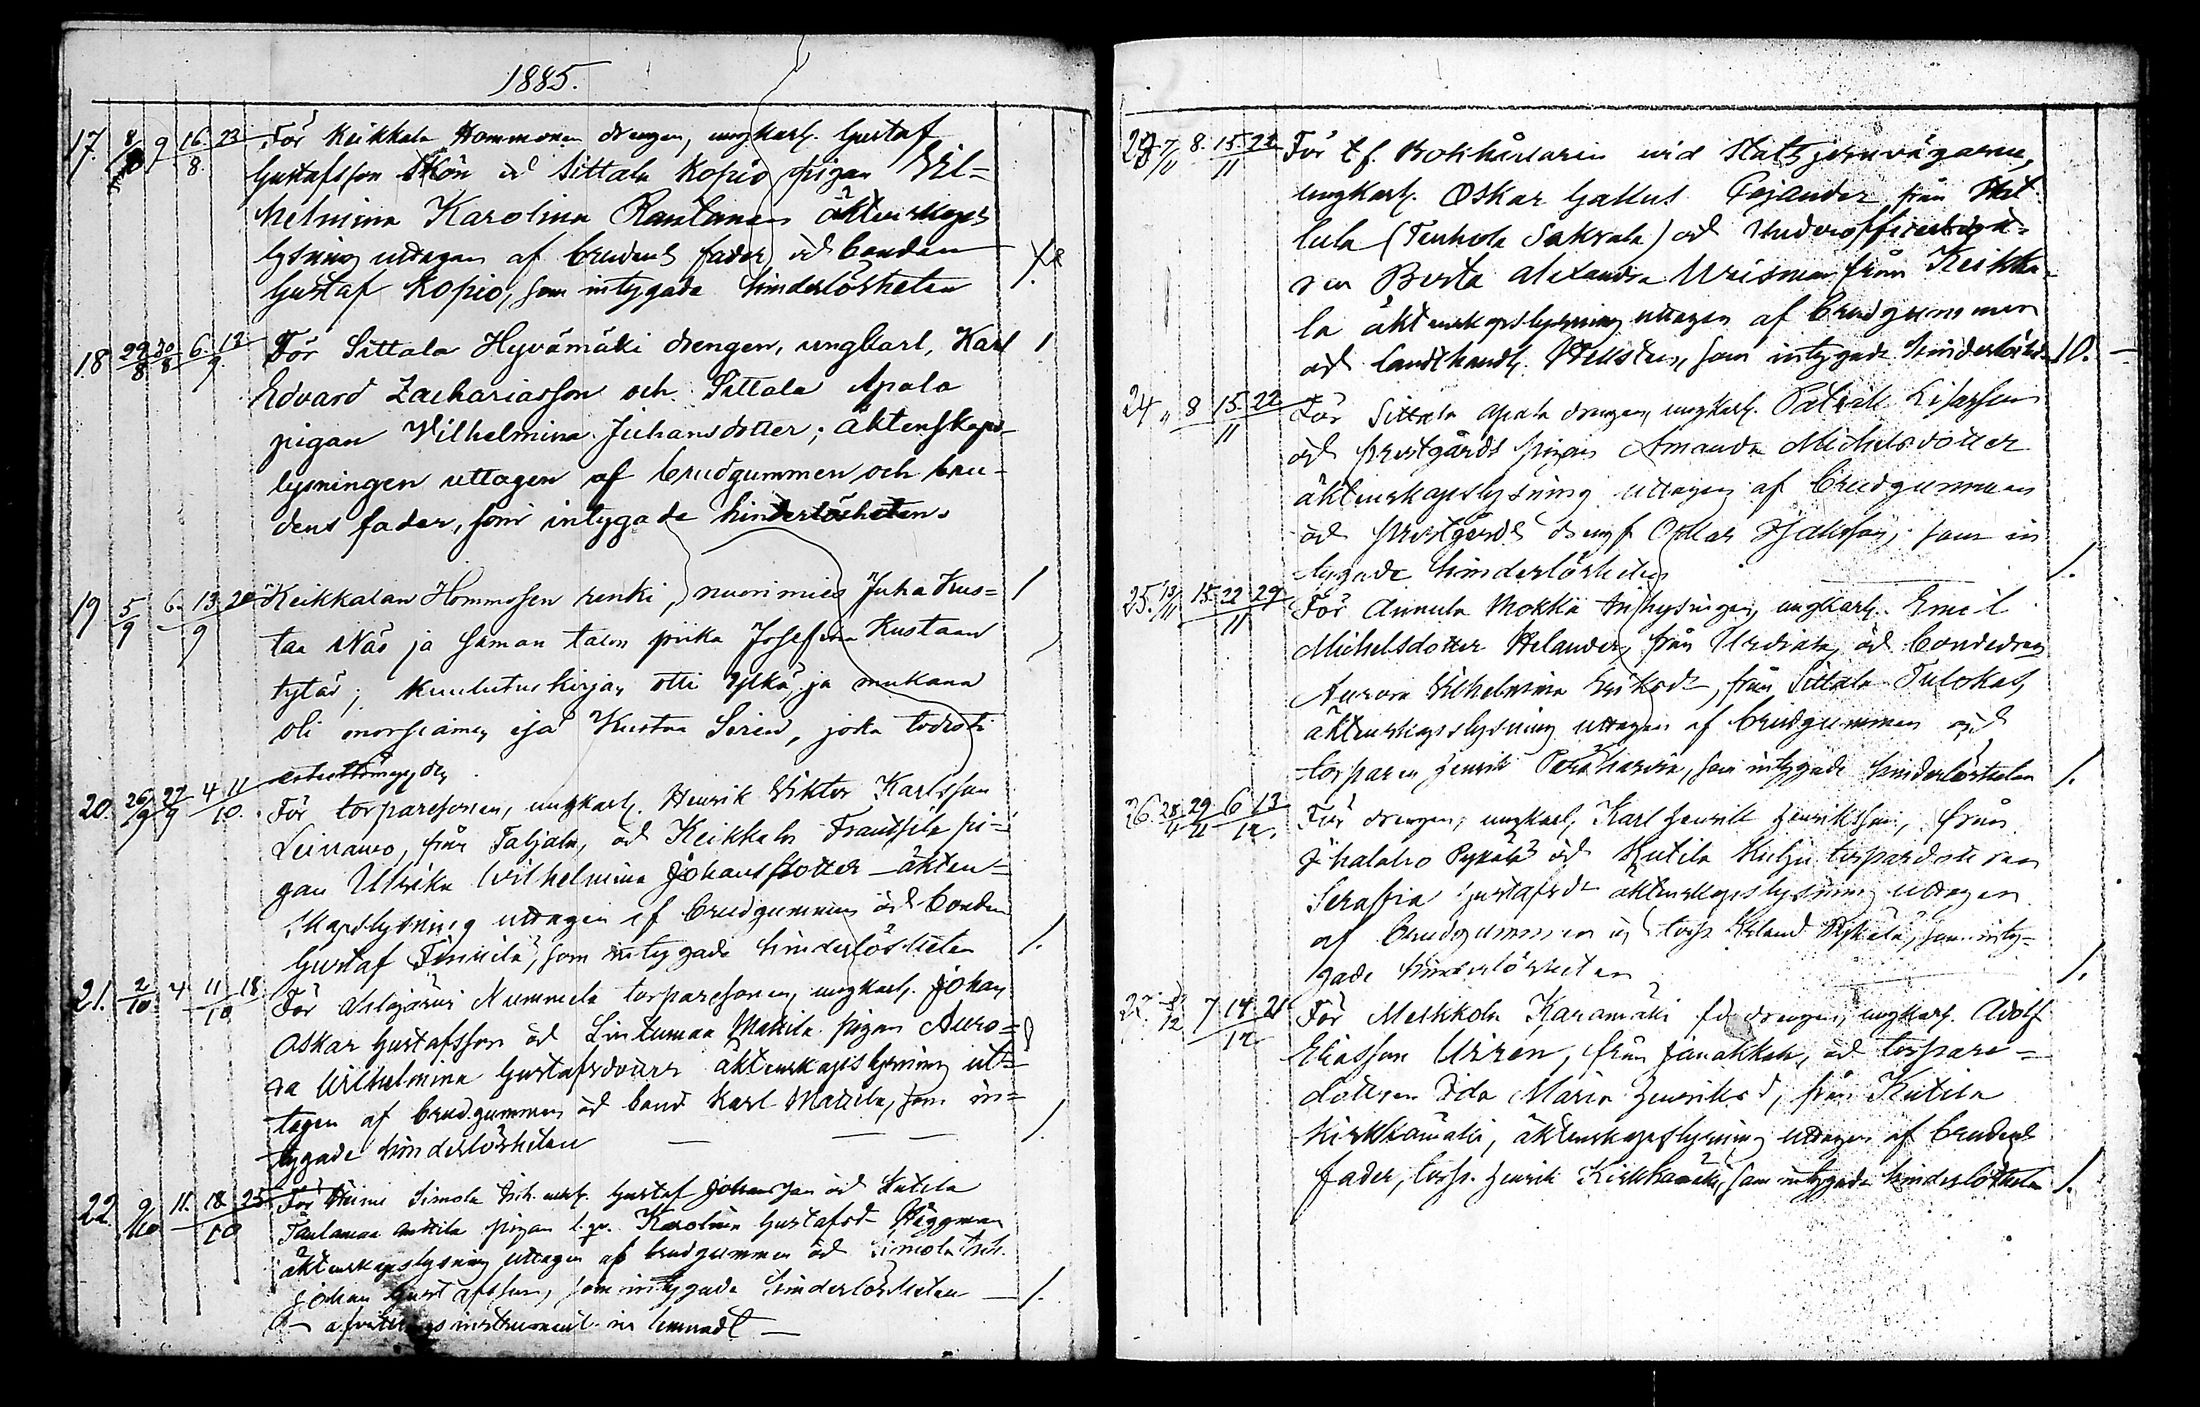 1885.
17. 8/8 9 16. 23 / 8. För Keikkala Hommonen drengen, ungkarl. Gustaf
Gustafsson Skön o Sittala Kopio pigan Vil=
helmina Karolina Rautanen äktenskaps
lysning uttagen af brudens fader, och bonden
Gustaf Kopio, som intygade hinderlösheten
18 29/8 30/8 6. 13 / 9. För Sittala Hyvämäki drengen, ungkarl, Karl 1
Edvard Zachariasson och Sittala Apala
pigan Vilhelmina Juhansdotter; äktenskaps-
lysningen uttagen af brudgummen och bru-
dens fader, som intygade hinderlösheten.
19 5/9 6. 13. 20 / 9 Keikkalan Hommosen renki, nuorimies Juha Kus= 1
taa Näs ja saman talon piika Josefina Kustaan
tytär; kuulutuskirjan otti ylkä, ja mukana
oli morsiamen isä Kustaa Seren, joka todisti
esteettömyyden
20. 26/9 27/9 4 11 / 10. För torparesonen, ungkarl. Henrik Viktor Karlsson
Leinawo, från Taljala, och Keikkala Frantsila pi-
gan Ulrika Wilhelmina Johansdotter – äkten=
skapslysning uttagen af brudgummen och bonden
Gustaf Finnilä, som intygade hinderlösheten 1.
21. 2/10 4 11 18 / 10 För Ahlajärvi Nummela torparesonen, ungkarl. Johan
Oskar Gustafsson och Lintumaa Mattila pigan Auro=
ra Wilhelmina Gustafsdotter äktenskapslysning ut=
tagen af brudgummen och bond Karl Mattila, som in=
tygade hinderlösheten — — — 1.
22 9/10 11. 18. 25 / 10 För Simola Gustaf Johansson och Kutila
pigan Karolina Gustafsd Häggman
äktenskapslysning uttagen af brudgummen och Simola
Johan Gustafsson, som intygade hinderlösheten — 1.
— afvittrings instrument in lemnadt —
23 7/11 8. 15. 22 / 11 För t.f. Bokhållaren vid Statsjernvägarne,
ungkarl. Oskar Gallus från
lula (Tenhola Saksala) och Underofficers
ren Berta Alexandra Wrisman från Keikka-
la äktenskapslysning uttagen af brudgummen
och landthandl. som intygade hinderlösheten 10. —
24 " 8 15. 22 / 11 För Sittala Apala drengen, ungkarl. Patrik
och prestgårds pigan Amanda Michelsdotter
äktenskapslysning uttagen af brudgummen
och prestgårds Oskar som in
tygade hinderlösheten — 1.
25. 13/11 15. 22 29 / 11 För Annula Mokka inhysingen, ungkarl. Emil
Michelsdotter Helander, från Urdiala, och
Aurora Vilhelmina Eriksdr, från Sittala Tulokas,
äktenskapslysning uttagen af brudgummen och
torparen Henrik som intygade hinderlösheten 1.
26. 28/11 29/11 6 13 / 12. För drengen, ungkarl, Karl Henrik Henriksson, från
och Kutila torpardotteren
Serafia Gustafsdr äktenskapslysning uttagen
af brudgummen och torp. Erland som inty-
gade hinderlösheten — 1.
27 /12 7 14 21 / 12 För Metkkola Karamäki fd drengen, ungkarl. Adolf
Eliasson från Janakkala, och torpare=
dottren Ida Maria Henriksd, från Kutila
Kirkkamäki, äktenskapslysning uttagen af brudens
fader, torp. Henrik Kirkkamäki, som intygade hinderlösheten 1.